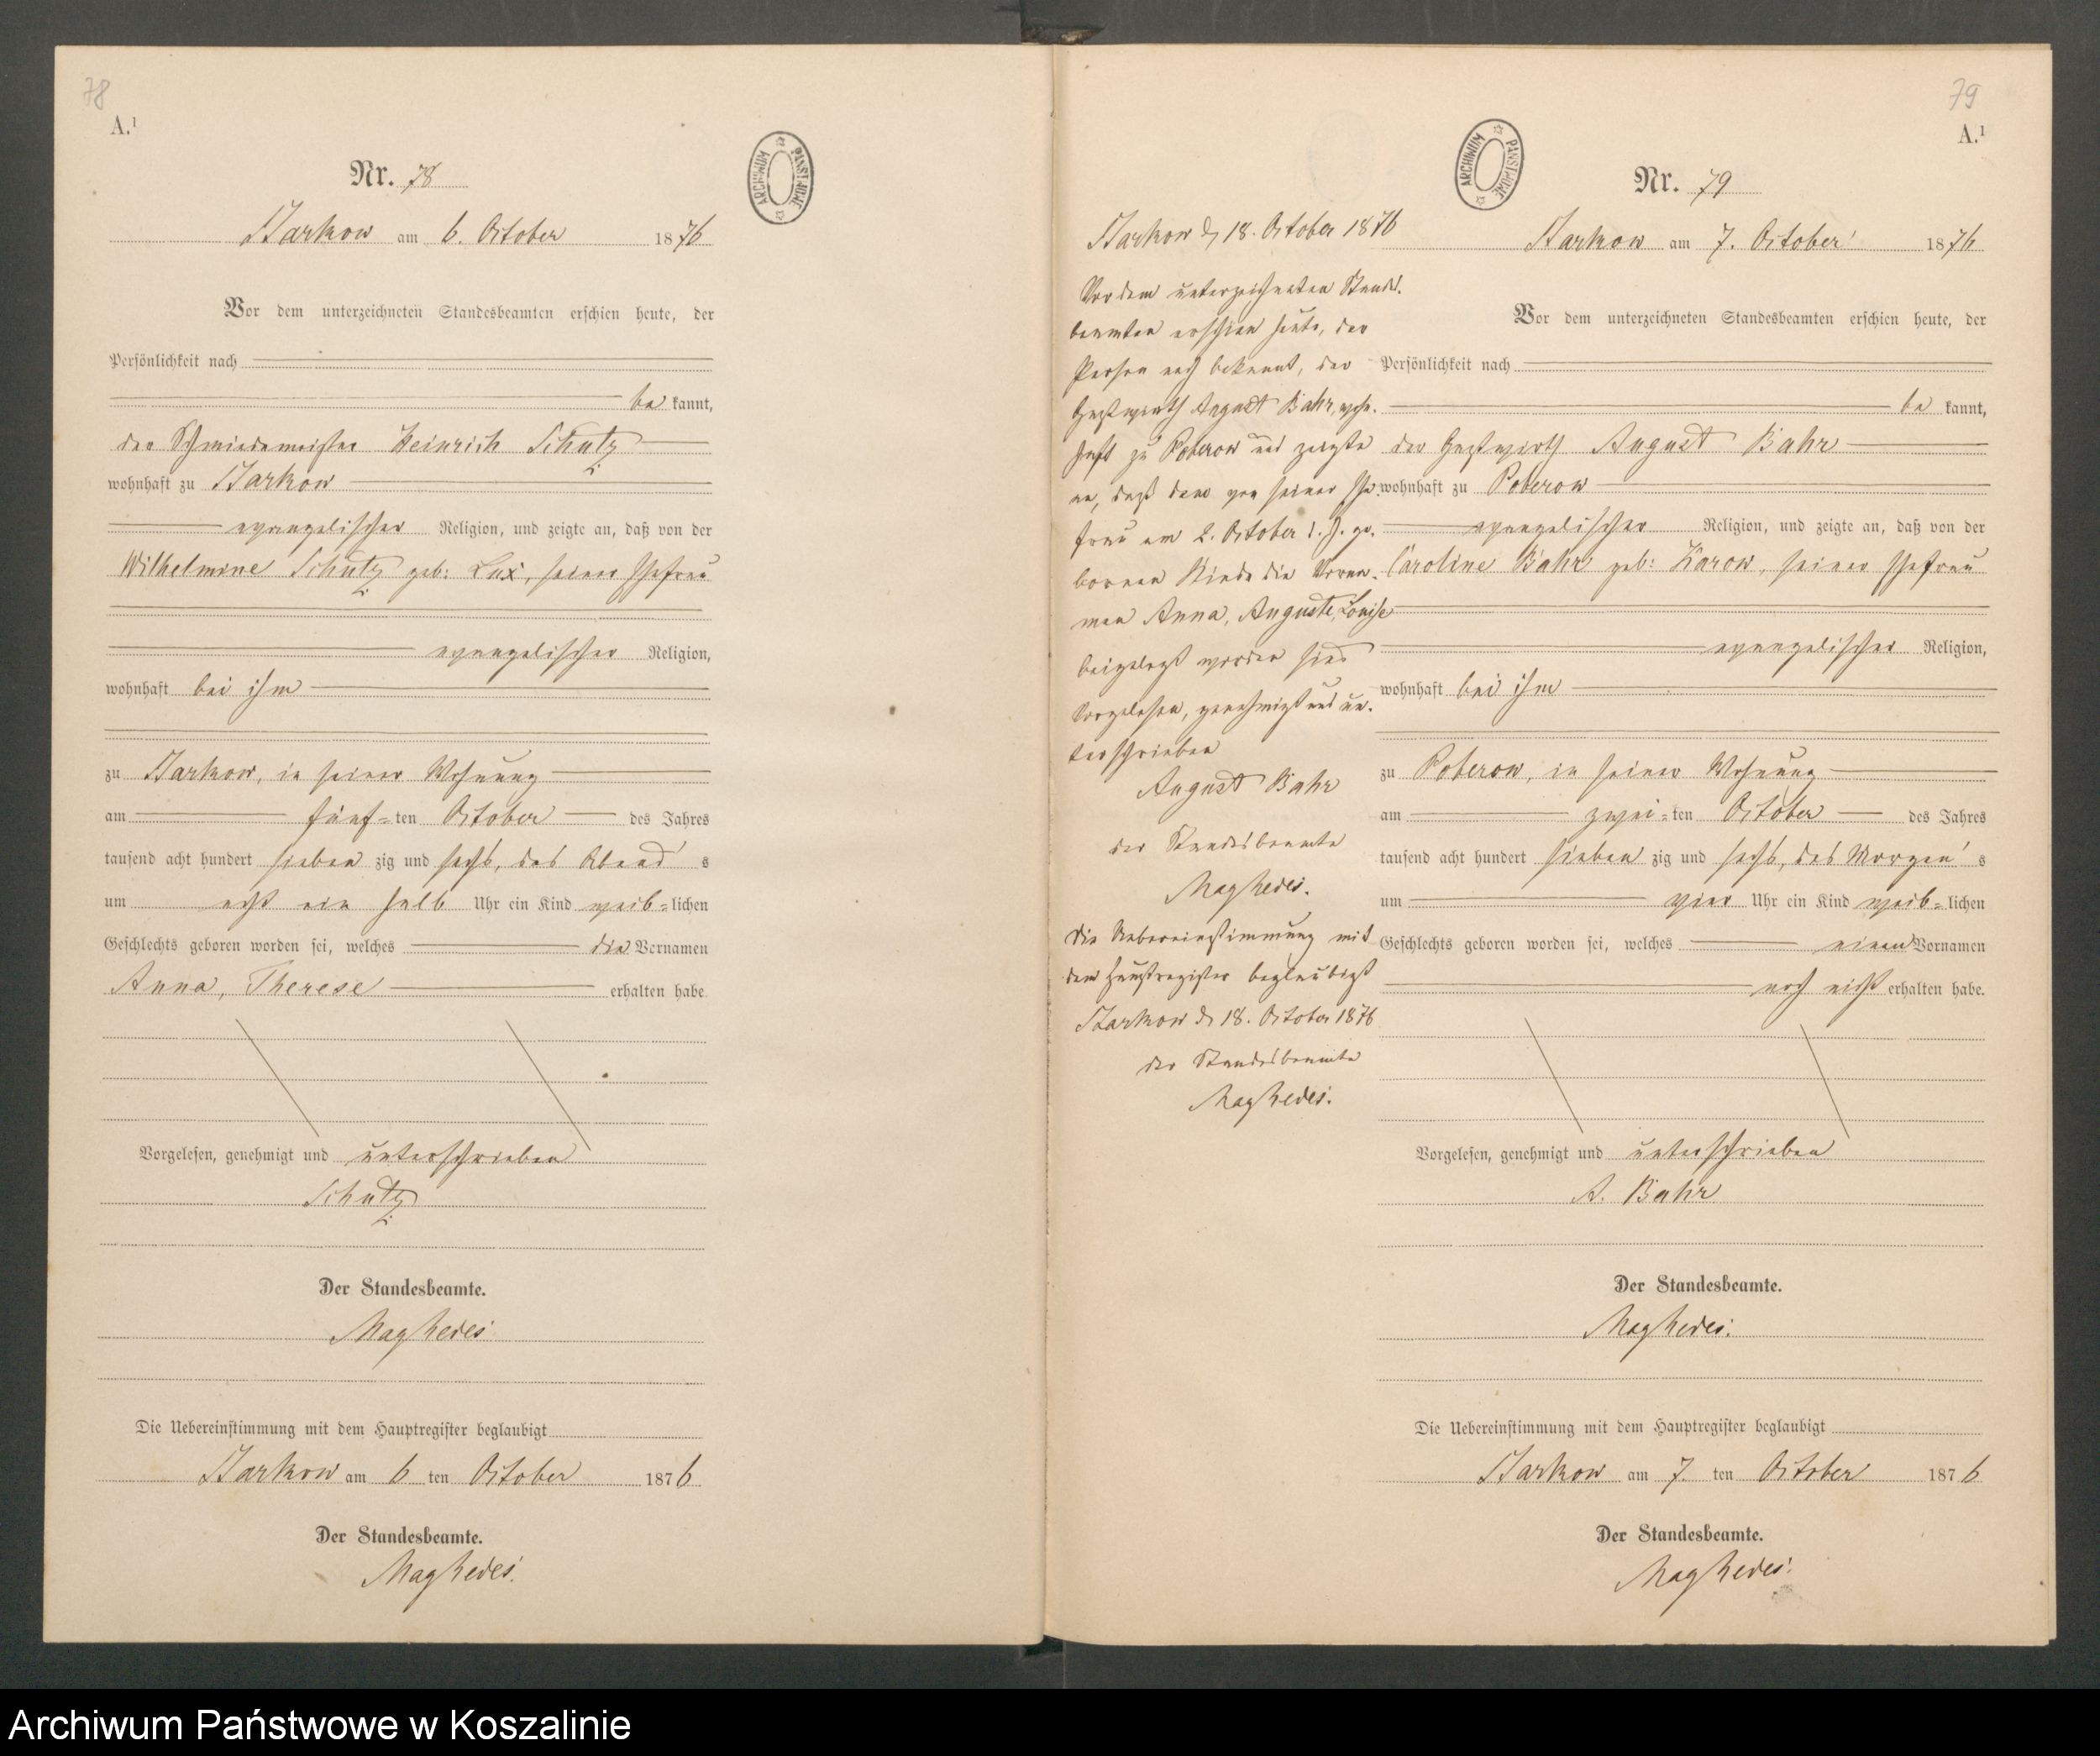 78
A.¹
Nr. 78
ARCHIWUM PAŃSTWOWE
Starkow am 6. October 1876
Vor dem unterzeichneten Standesbeamten erschien heute, der
Persönlichkeit nach
be kannt,
der Schmiedemeister Heinrich Schutz
wohnhaft zu Starkow
evangelischer Religion, und zeigte an, daß von der
Wilhelmine Schutz geb: Lux, seiner Ehefrau
evangelischer Religion,
wohnhaft bei ihm
zu Starkow, in seiner Wohnung
am fünf=ten October des Jahres
tausend acht hundert sieben zig und sechs, des Abend s
um acht ein halb Uhr ein Kind weib=lichen
Geschlechts geboren worden sei, welches die Vornamen
Anna, Therese erhalten habe.
Vorgelesen, genehmigt und unterschrieben
Schutz
Der Standesbeamte.
Die Uebereinstimmung mit dem Hauptregister beglaubigt
Starkow am 6 ten October 1876
Der Standesbeamte.
79
A.¹
ARCHIWUM PAŃSTWOWE
Nr. 79
Starkow d 18. October 1876
Vor dem unterzeichneten Stands.
beamten erschien heute, der
Person nach bekannt, der
Gastwirth August Bahr, wohn.
haft zu Poberow und zeigte
an, daß dem von seiner Ehe.
frau am 2. October d. J. ge.
bornen Kinde die Vorna.
men Anna, Auguste, Louise
beigelegt worden sind
Vorgelesen, genehmigt und un.
terschrieben
August Bahr
der Standesbeamte
Die Uebereinstimmung mit
dem Hauptregister beglaubigt
Starkow d 18. October 1876
der Standesbeamte
Starkow am 7. October 1876
Vor dem unterzeichneten Standesbeamten erschien heute, der
Persönlichkeit nach
be kannt,
der Gastwirth August Bahr
wohnhaft zu Poberow
evangelischer Religion, und zeigte an, daß von der
Caroline Bahr geb: Karow, seiner Ehefrau
evangelischer Religion,
wohnhaft bei ihm
zu Poberow, in seiner Wohnung
am zwei=ten October des Jahres
tausend acht hundert sieben zig und sechs, des Morgen s
um vier Uhr ein Kind weib=lichen
Geschlechts geboren worden sei, welches einen Vornamen
noch nicht erhalten habe.
Vorgelesen, genehmigt und unterschrieben
A. Bahr
Der Standesbeamte.
Die Uebereinstimmung mit dem Hauptregister beglaubigt
Starkow am 7. ten October 1876
Der Standesbeamte.
Archiwum Państwowe w Koszalinie